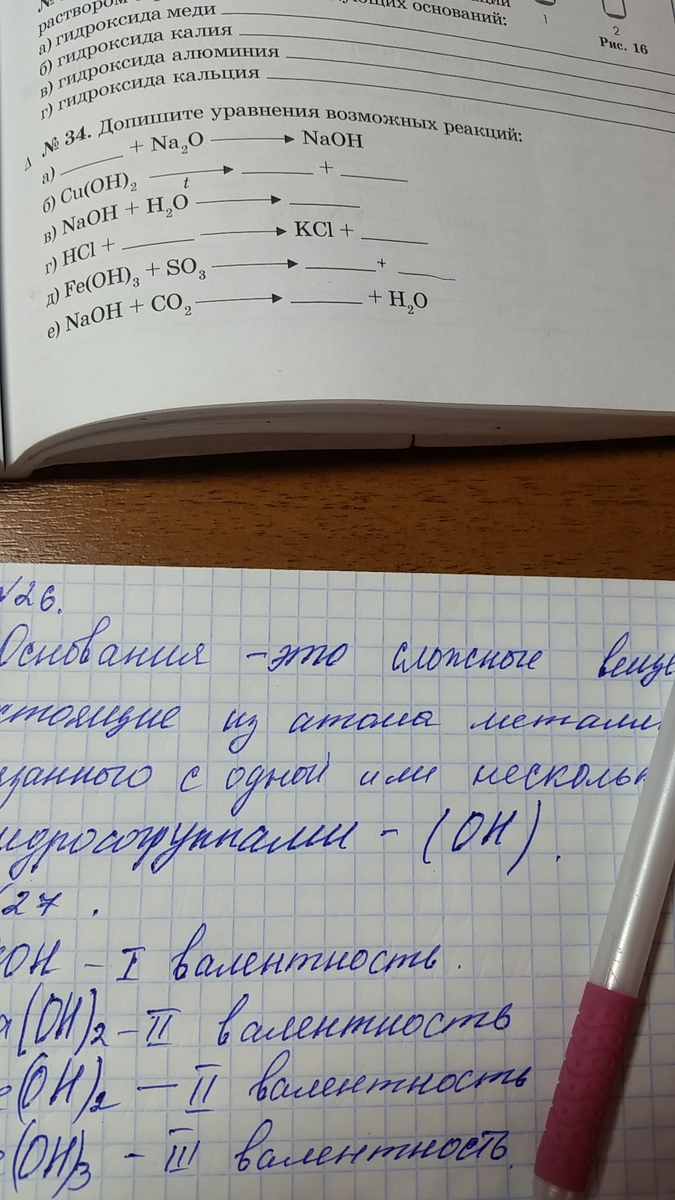 раствором
оснований:
1
2
Рис. 16
а) гидроксида меди
б) гидроксида калия
в) гидроксида алюминия
г) гидроксида кальция
№ 34. Допишите уравнения возможных реакций:
а) ______ + Na₂O → NaOH
б) Cu(OH)₂ → ______ + ______
t
в) NaOH + H₂O → ______
г) HCl + ______ → KCl + ______
д) Fe(OH)₃ + SO₃ → ______ + ______
е) NaOH + CO₂ → ______ + H₂O
26.
Основания - это сложные веще
стоящие из атома металл
язанного с одной или несколь
идросогруппами - (OH).
27.
OH - I валентность.
(OH)₂ - II валентность
(OH)₂ - II валентность
(OH)₃ - III валентность.